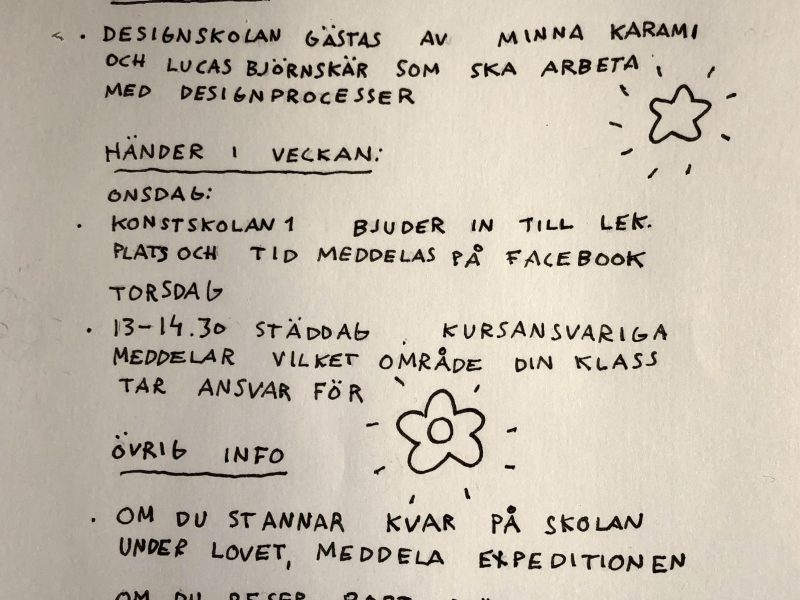 . DESIGNSKOLAN GÄSTAS AV MINNA KARAMI
OCH LUCAS BJÖRNSKÄR SOM SKA ARBETA
MED DESIGNPROCESSER
HÄNDER I VECKAN:
ONSDAG:
. KONSTSKOLAN 1 BJUDER IN TILL LEK.
PLATS OCH TID MEDDELAS PÅ FACEBOOK
TORSDAG
. 13-14.30 STÄDDAG. KURSANSVARIGA
MEDDELAR VILKET OMRÅDE DIN KLASS
TAR ANSVAR FÖR
ÖVRIG INFO
. OM DU STANNAR KVAR PÅ SKOLAN
UNDER LOVET, MEDDELA EXPEDITIONEN
OM DU RESER